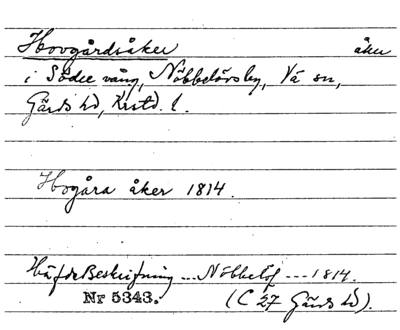 Hovgårdsåker åker
i Södre vång, Nöbbelövsby, Vä sn,
Gärds hd, Krstd. l.
Hogåra åker 1814.
Häfde Beskrifning ... Nöbbelöf --- 1814.
Nr 5343. (C 27 Gärds hd).